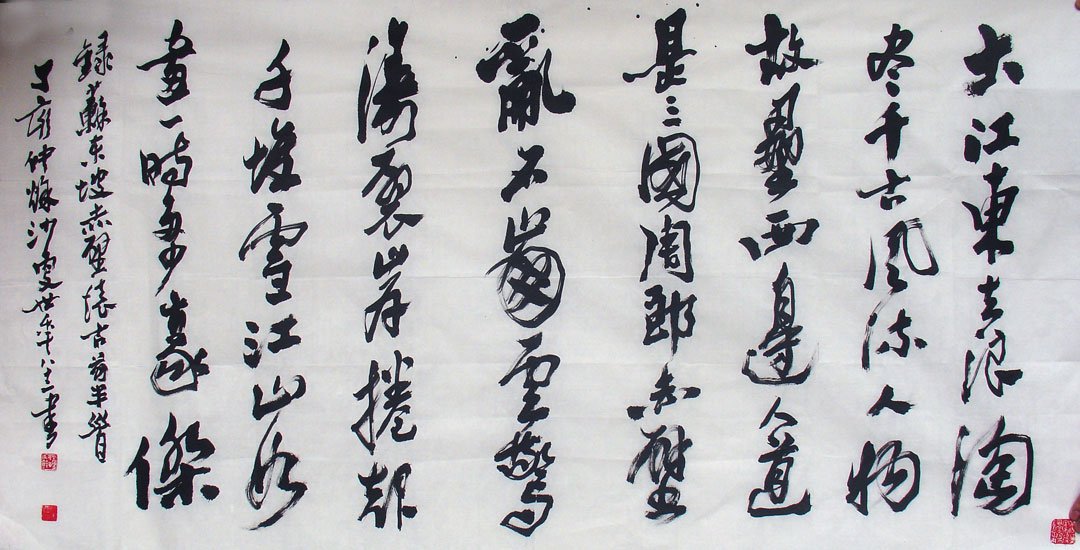 大江東去浪淘
尽千古風流人物
故壘西邊人道
是三國周郎赤壁
亂石崩雲驚
濤裂岸捲起
千堆雪江山如
畫一時多少豪傑
錄蘇東坡赤壁懷古前半
丁亥仲秋沙叟書